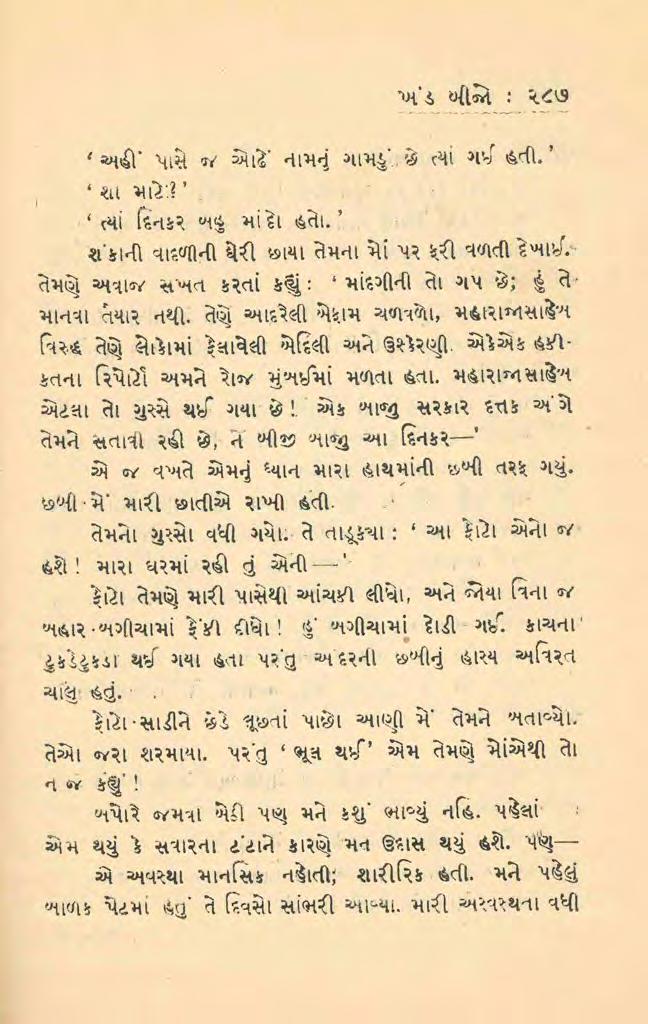 ખંડ બીજો : ૨૮૭
‘ અહીં પાસે જ ઓઢેં નામનું ગામડું છે ત્યાં ગઈ હતી. ’
‘ શા માટે ? ’
‘ ત્યાં દિનકર બહુ માંદો હતો. ’
શંકાની વાદળીની ઘેરી છાયા તેમના મોં પર ફરી વળતી દેખાઈ.
તેમણે અવાજ સખત કરતાં કહ્યું : ‘ માંદગીની તો ગપ છે; હું તે
માનવા તૈયાર નથી. તેણે આદરેલી બેફામ ચળવળો, મહારાજાસાહેબ
વિરુદ્ધ તેણે લોકોમાં ફેલાવેલી બેદિલી અને ઉશ્કેરણી. એકેએક હકી-
કતના રિપોર્ટો અમને રોજ મુંબઈમાં મળતા હતા. મહારાજાસાહેબ
એટલા તો ગુસ્સે થઈ ગયા છે ! એક બાજુ સરકાર દત્તક અંગે
તેમને સતાવી રહી છે, ને બીજી બાજુ આ દિનકર—’
એ જ વખતે એમનું ધ્યાન મારા હાથમાંની છબી તરફ ગયું.
છબી મેં મારી છાતીએ રાખી હતી.
તેમનો ગુસ્સો વધી ગયો. તે તાડૂક્યા : ‘ આ ફોટો એનો જ
હશે ! મારા ઘરમાં રહી તું એની —’
ફોટો તેમણે મારી પાસેથી આંચકી લીધો, અને જોયા વિના જ
બહાર બગીચામાં ફેંકી દીધો ! હું બગીચામાં દોડી ગઈ. કાચના
ટુકડેટુકડા થઈ ગયા હતા પરંતુ અંદરની છબીનું હાસ્ય અવિરત
ચાલુ હતું.
ફોટો સાડીને છેડે લૂછતાં પાછો આણી મેં તેમને બતાવ્યો.
તેઓ જરા શરમાયા. પરંતુ ‘ ભૂલ થઈ’ એમ તેમણે મોંએથી તો
ન જ કહ્યું !
બપોરે જમવા બેઠી પણ મને કશું ભાવ્યું નહિ. પહેલાં
એમ થયું કે સવારના ટંટાને કારણે મન ઉદાસ થયું હશે. પણ—
એ અવસ્થા માનસિક નહોતી; શારીરિક હતી. મને પહેલું
બાળક પેટમાં હતું તે દિવસો સાંભરી આવ્યા. મારી અસ્વસ્થતા વધી